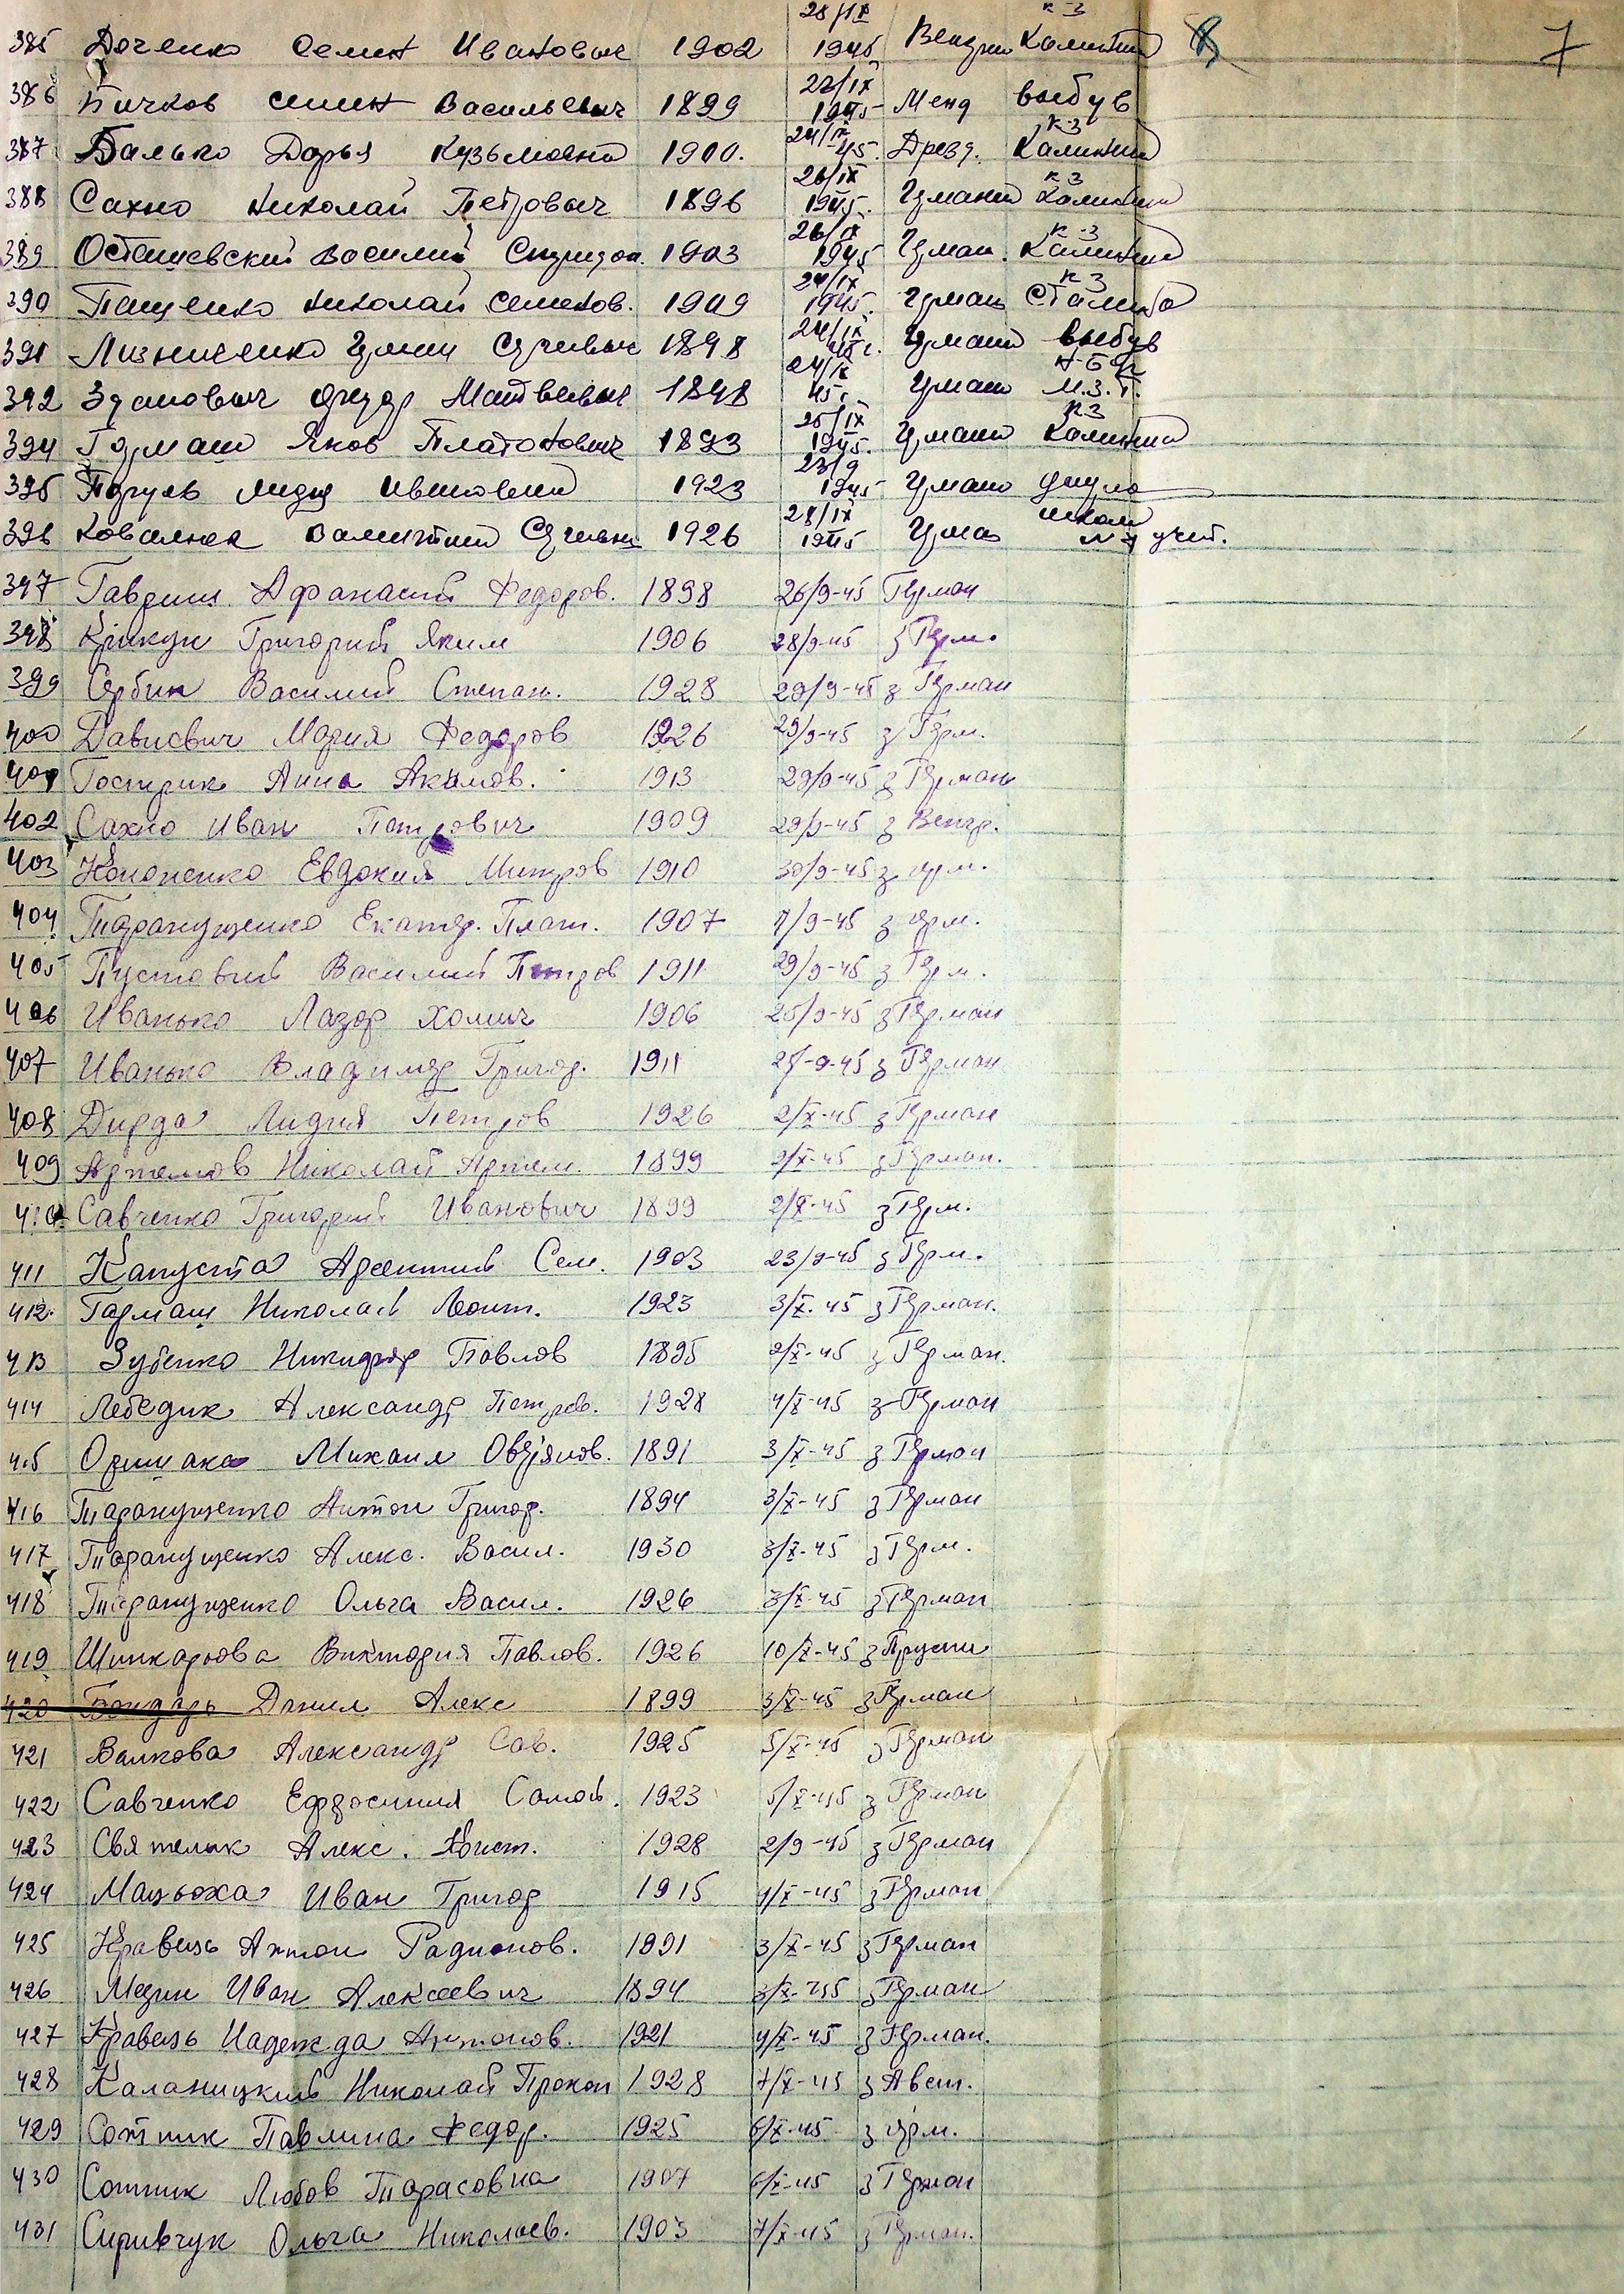 7
385 Доценко Семен Иванович 1902 28/IX 1945 Венгрии к-з Калинина
386 Бичков Семен Васильевич 1899 27/IX 1945 выбув
387 Балько Дарья Кузьмовна 1900. 24/IX 45. Дрезд. к-з Калинина
388 Сахно Николай Петрович 1896 26/IX 1945. к з Калинина
389 Осташевский Василий Спиридон. 1903 26/IX 1945 к-з Калинина
390 Пащенко Николай Семенов. 1909 24/IX 1945. к з Сталина
391 Лизниченко 1898 24/IX 45 г. выбув
392 Зданович Федор Матвеевич 1898 24/IX 45. М.З.Т.
394 Гармаш Яков Платонович 1893 25/IX 1945. к з Калинина
395 Лидия Ивановна 1923 23/9 1945
396 1926 28/IX 1945 школи учит.
397 Гавриш Афанасий Федоров. 1898 26/9-45 Герман
398 Крикун Григорий Яким 1906 28/9-45 з Герм.
399 Сербин Василий Степан. 1928 29/9-45 з Герман
400 Давиевич Мария Федоров 1926 29/9-45 з Герм.
401 Гострик Анна Акимов. 1913 29/9-45 з Герман
402 Сахно Иван Петрович 1909 29/9-45 з Венгр.
403 Кононенко Евдокия Митров 1910 30/9-45 з герм.
404 Таранущенко Екатер. Плат. 1907 1/9-45 з герм.
405 Пустовий Василий Петров 1911 29/9-45 з Герм.
406 Иванько Лазор Хомич 1906 25/9-45 з Герман
407 Иванько Владимер Григор. 1911 -9-45 з Герман
408 Дирда Лидия Петров 1926 2/X-45 з Герман
409 Артемов Николай Артем. 1899 2/X-45 з Герман.
410 Савченко Григорий Иванович 1899 2/X-45 з Герм.
411 Капуста Арсентий Сем. 1903 23/9-45 з Герм.
412. Гармаш Николай Леонт. 1923 3/X-45 з Герман.
413 Зубенко Никифор Павлов 1895 2/X-45 з Герман.
414 Лебедик Александр Петров. 1928 4/X-45 з Герман
415 Оришака Михаил Овдіянов. 1891 3/X-45 з Герман
416 Таранущенко Антон Григор. 1894 3/X-45 з Герман
417 Таранущенко Алекс. Васил. 1930 3/X-45 з Герм.
418 Таранущенко Ольга Васил. 1926 3/X-45 з Герман
419 Шинкарьова Виктория Павлов. 1926 10/X-45 з Прусии
420 Бондарь Данил Алекс 1899 3/X-45 з Герман
421 Валкова Александр Сав. 1925 5/X-45 з Герман
422 Савченко Ефросиния Самой. 1923 5/X-45 з Герман
423 Святелик Алекс. 1928 2/9-45 з Герман
424 Мацьоха Иван Григор 1915 4/X-45 з Герман
425 Кравець Антон Радионов. 1891 3/X-45 з Герман
426 Иван Алексеевич 1894 3/X-45 з Герман
427 Кравець Надежда Антонов. 1921 4/X-45 з Герман.
428 Каланицкий Николай Прокоп 1928 7/X-45 з Авст.
429 Сотник Павлина Федор. 1925 6/X-45 з герм.
430 Сотник Любов Тарасовна 1907 6/X-45 з Герман
431 Сиривчук Ольга Николаев. 1903 7/X-45 з Герман.